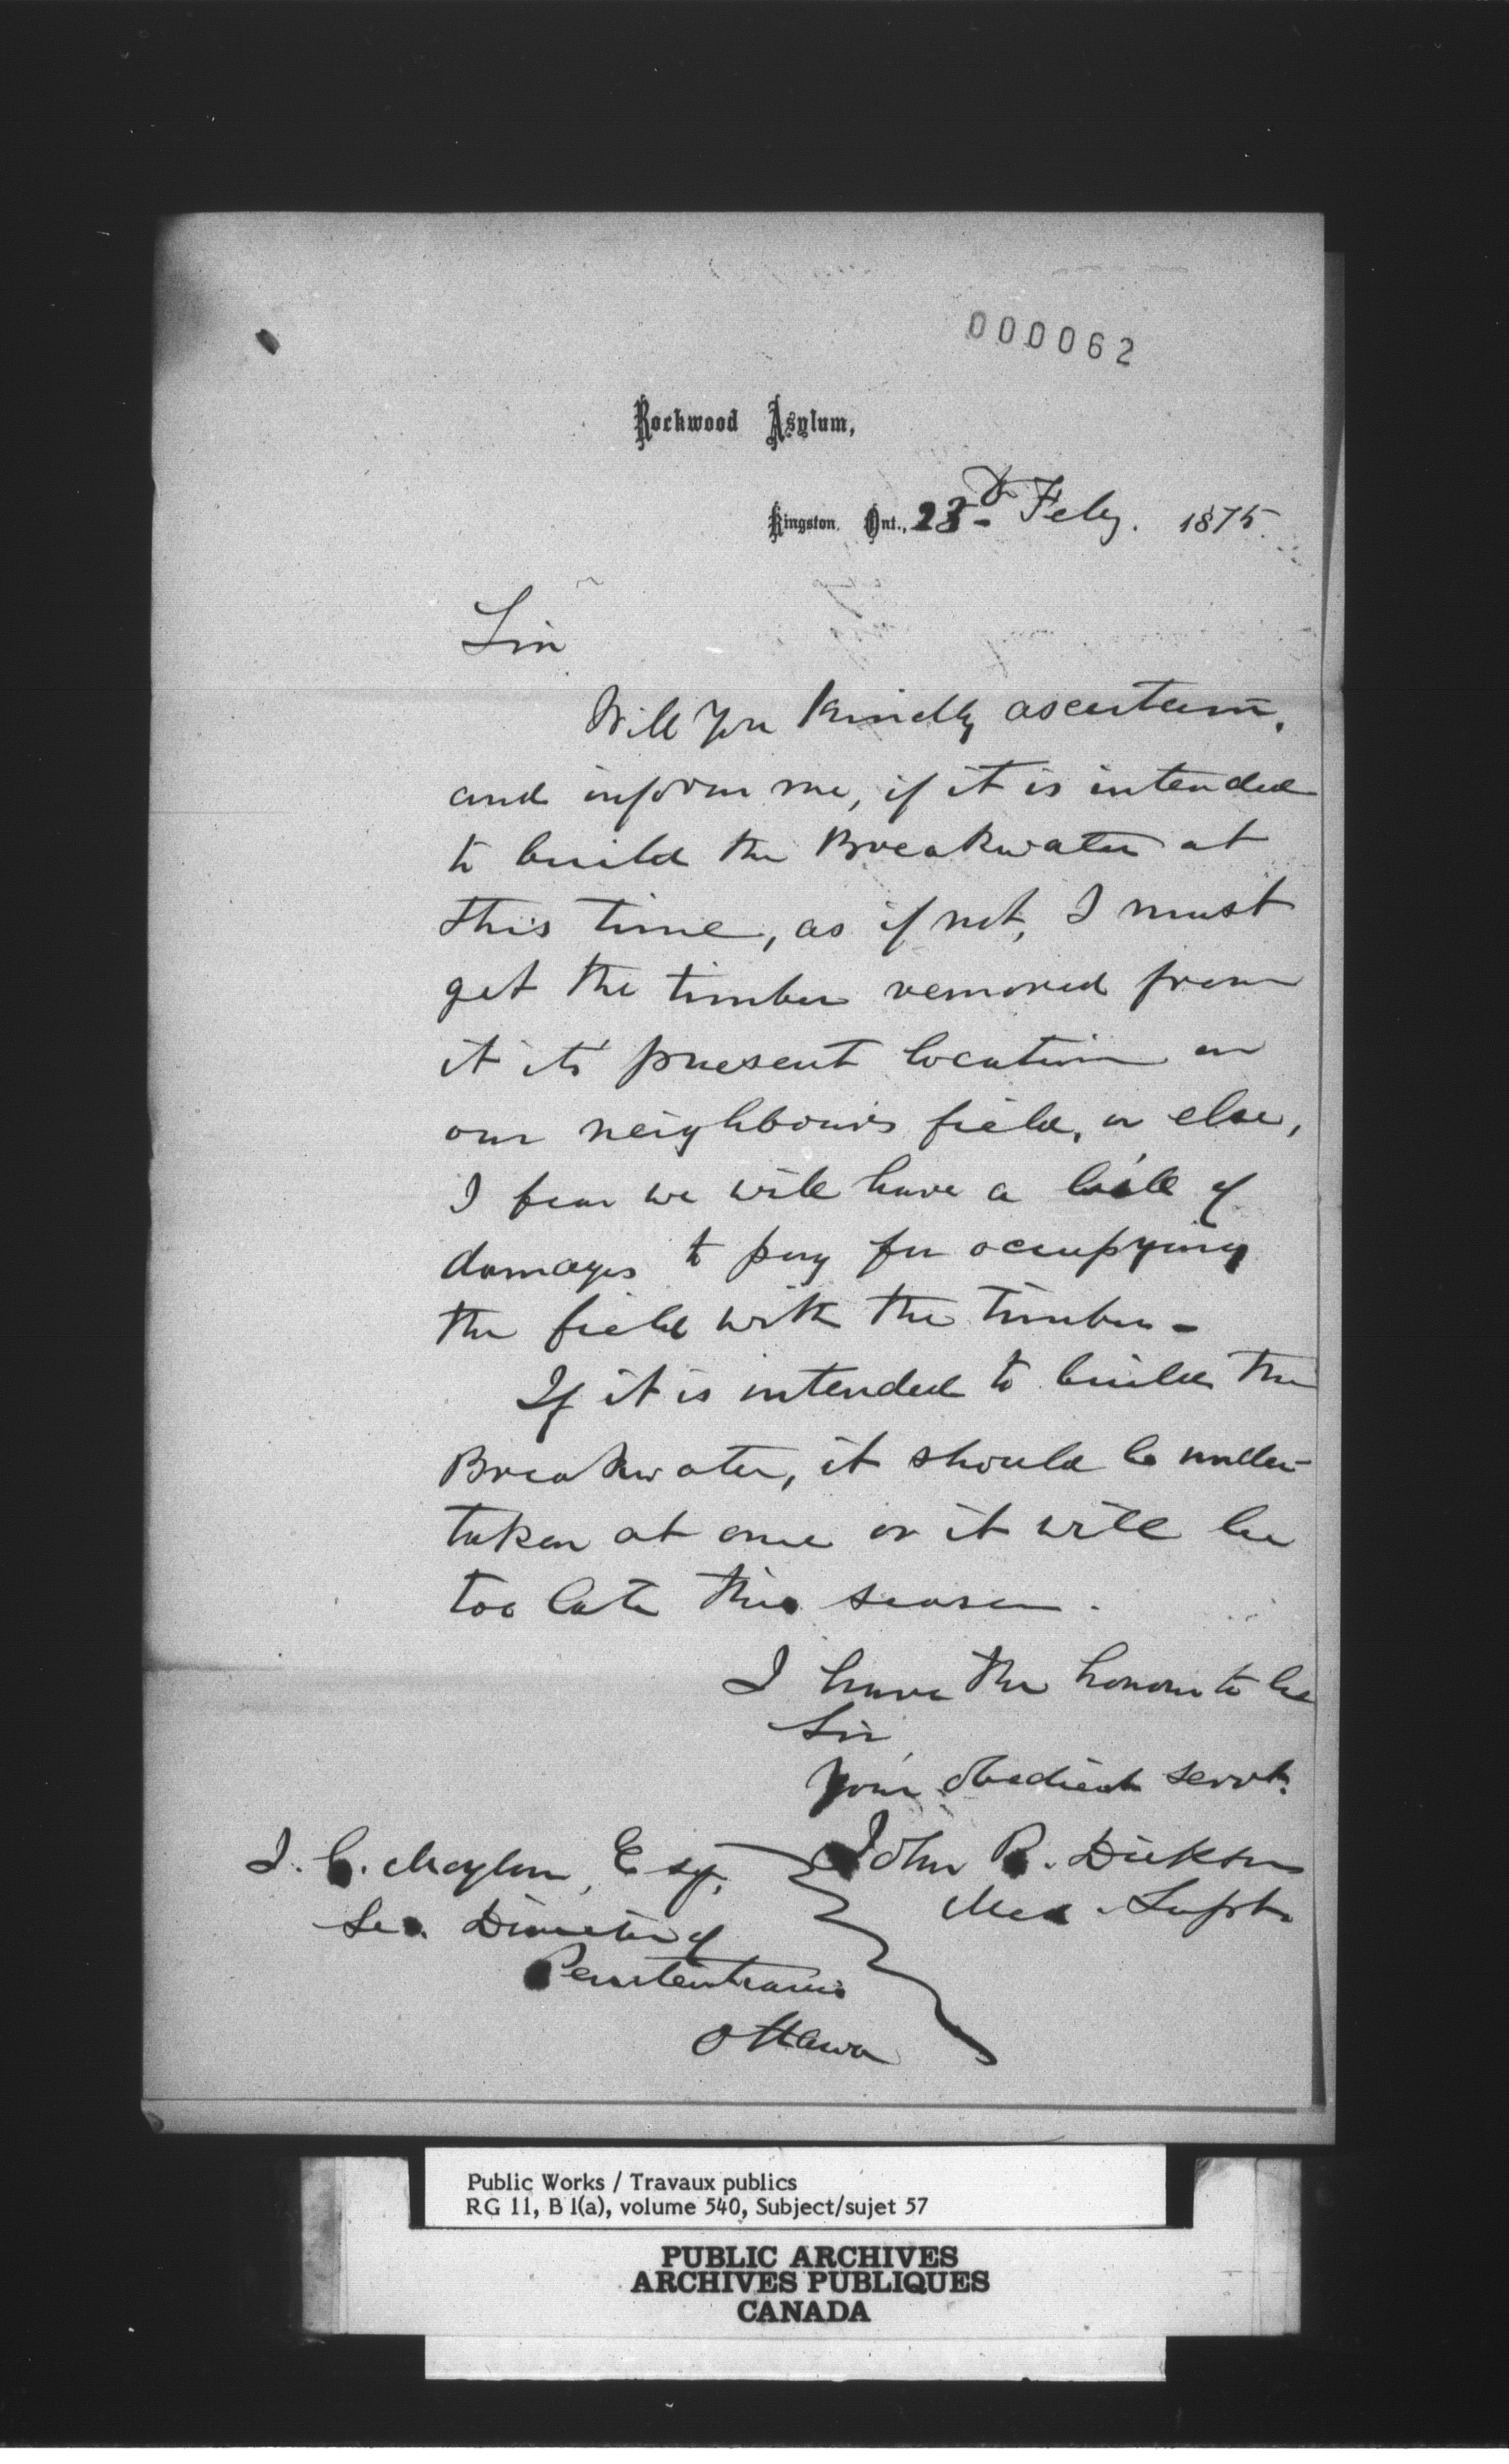 000062
Rockwood Asylum,
Kingston, Ont., 23d Feby. 1875.
Sir
Will you kindly ascertain,
and inform me, if it is intended
to build the Breakwater at
this time, as if not, I must
get the timber removed from
it its present location on
our neighbours field, or else,
I fear we will have a bill of
damages to pay for occupying
the field with the timber -
If it is intended to build the
Breakwater, it should be under-
taken at once or it will be
too late this season.
I have the honour to be
Sir,
Your obedient servt.
John R. Dickson
Med. Supt.
J. G. Moylan, Esq,
Director of
Penitentiaries
Ottawa
Public Works / Travaux publics
RG 11, B 1(a), volume 540, Subject/sujet 57
PUBLIC ARCHIVES
ARCHIVES PUBLIQUES
CANADA